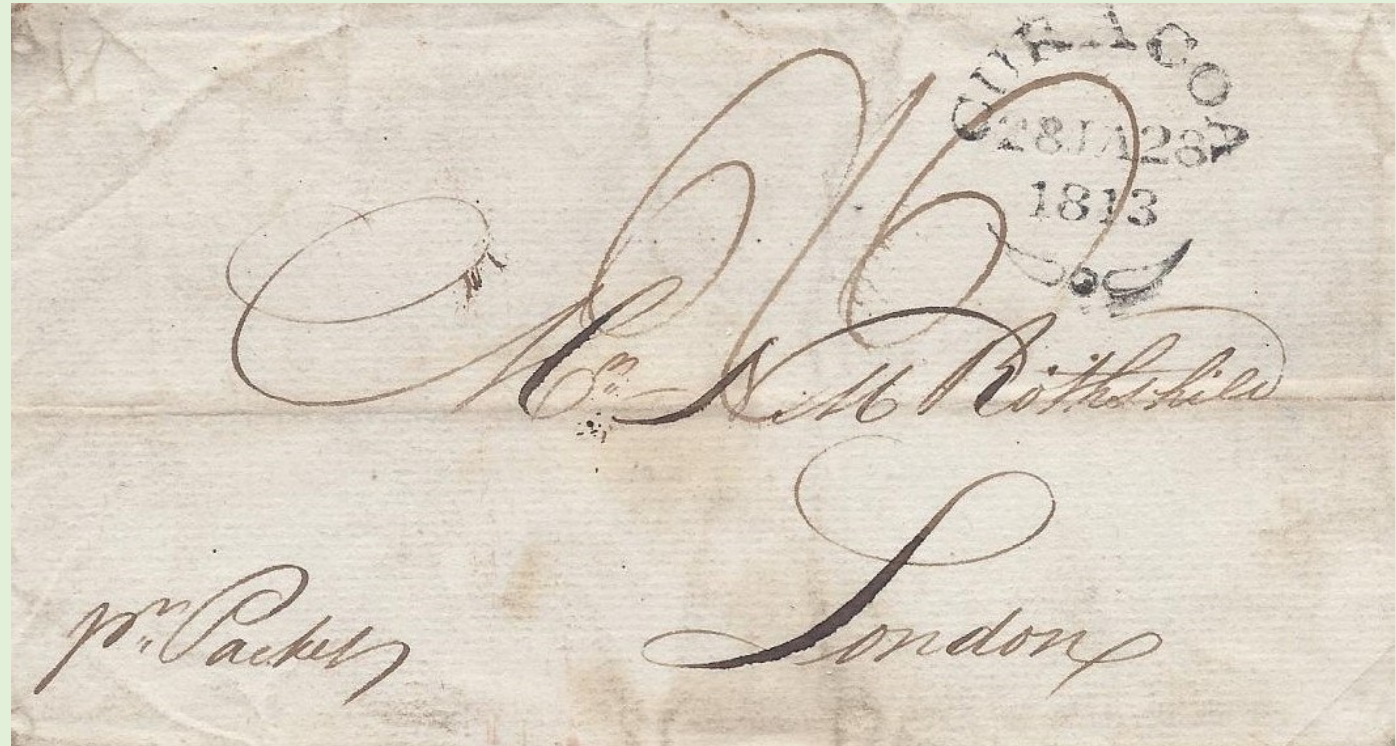 CURACOA
28JA28
1813
2/2
Mr. N M Rothshild
London
pr. Packet